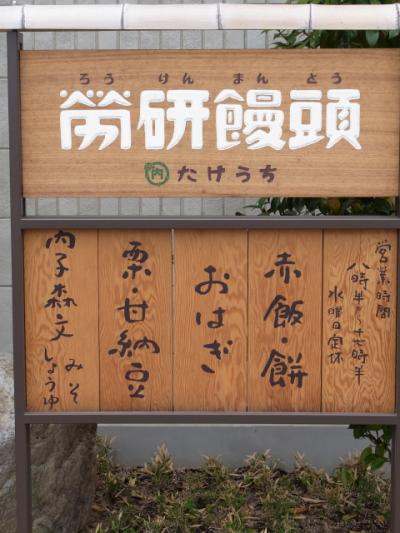 ろうけんまんとう
労研饅頭
内 たけうち
営業時間
八時半〜十七時半
水曜日定休
赤飯・餅
おはぎ
栗・甘納豆
内子森文
みそ
しょうゆ